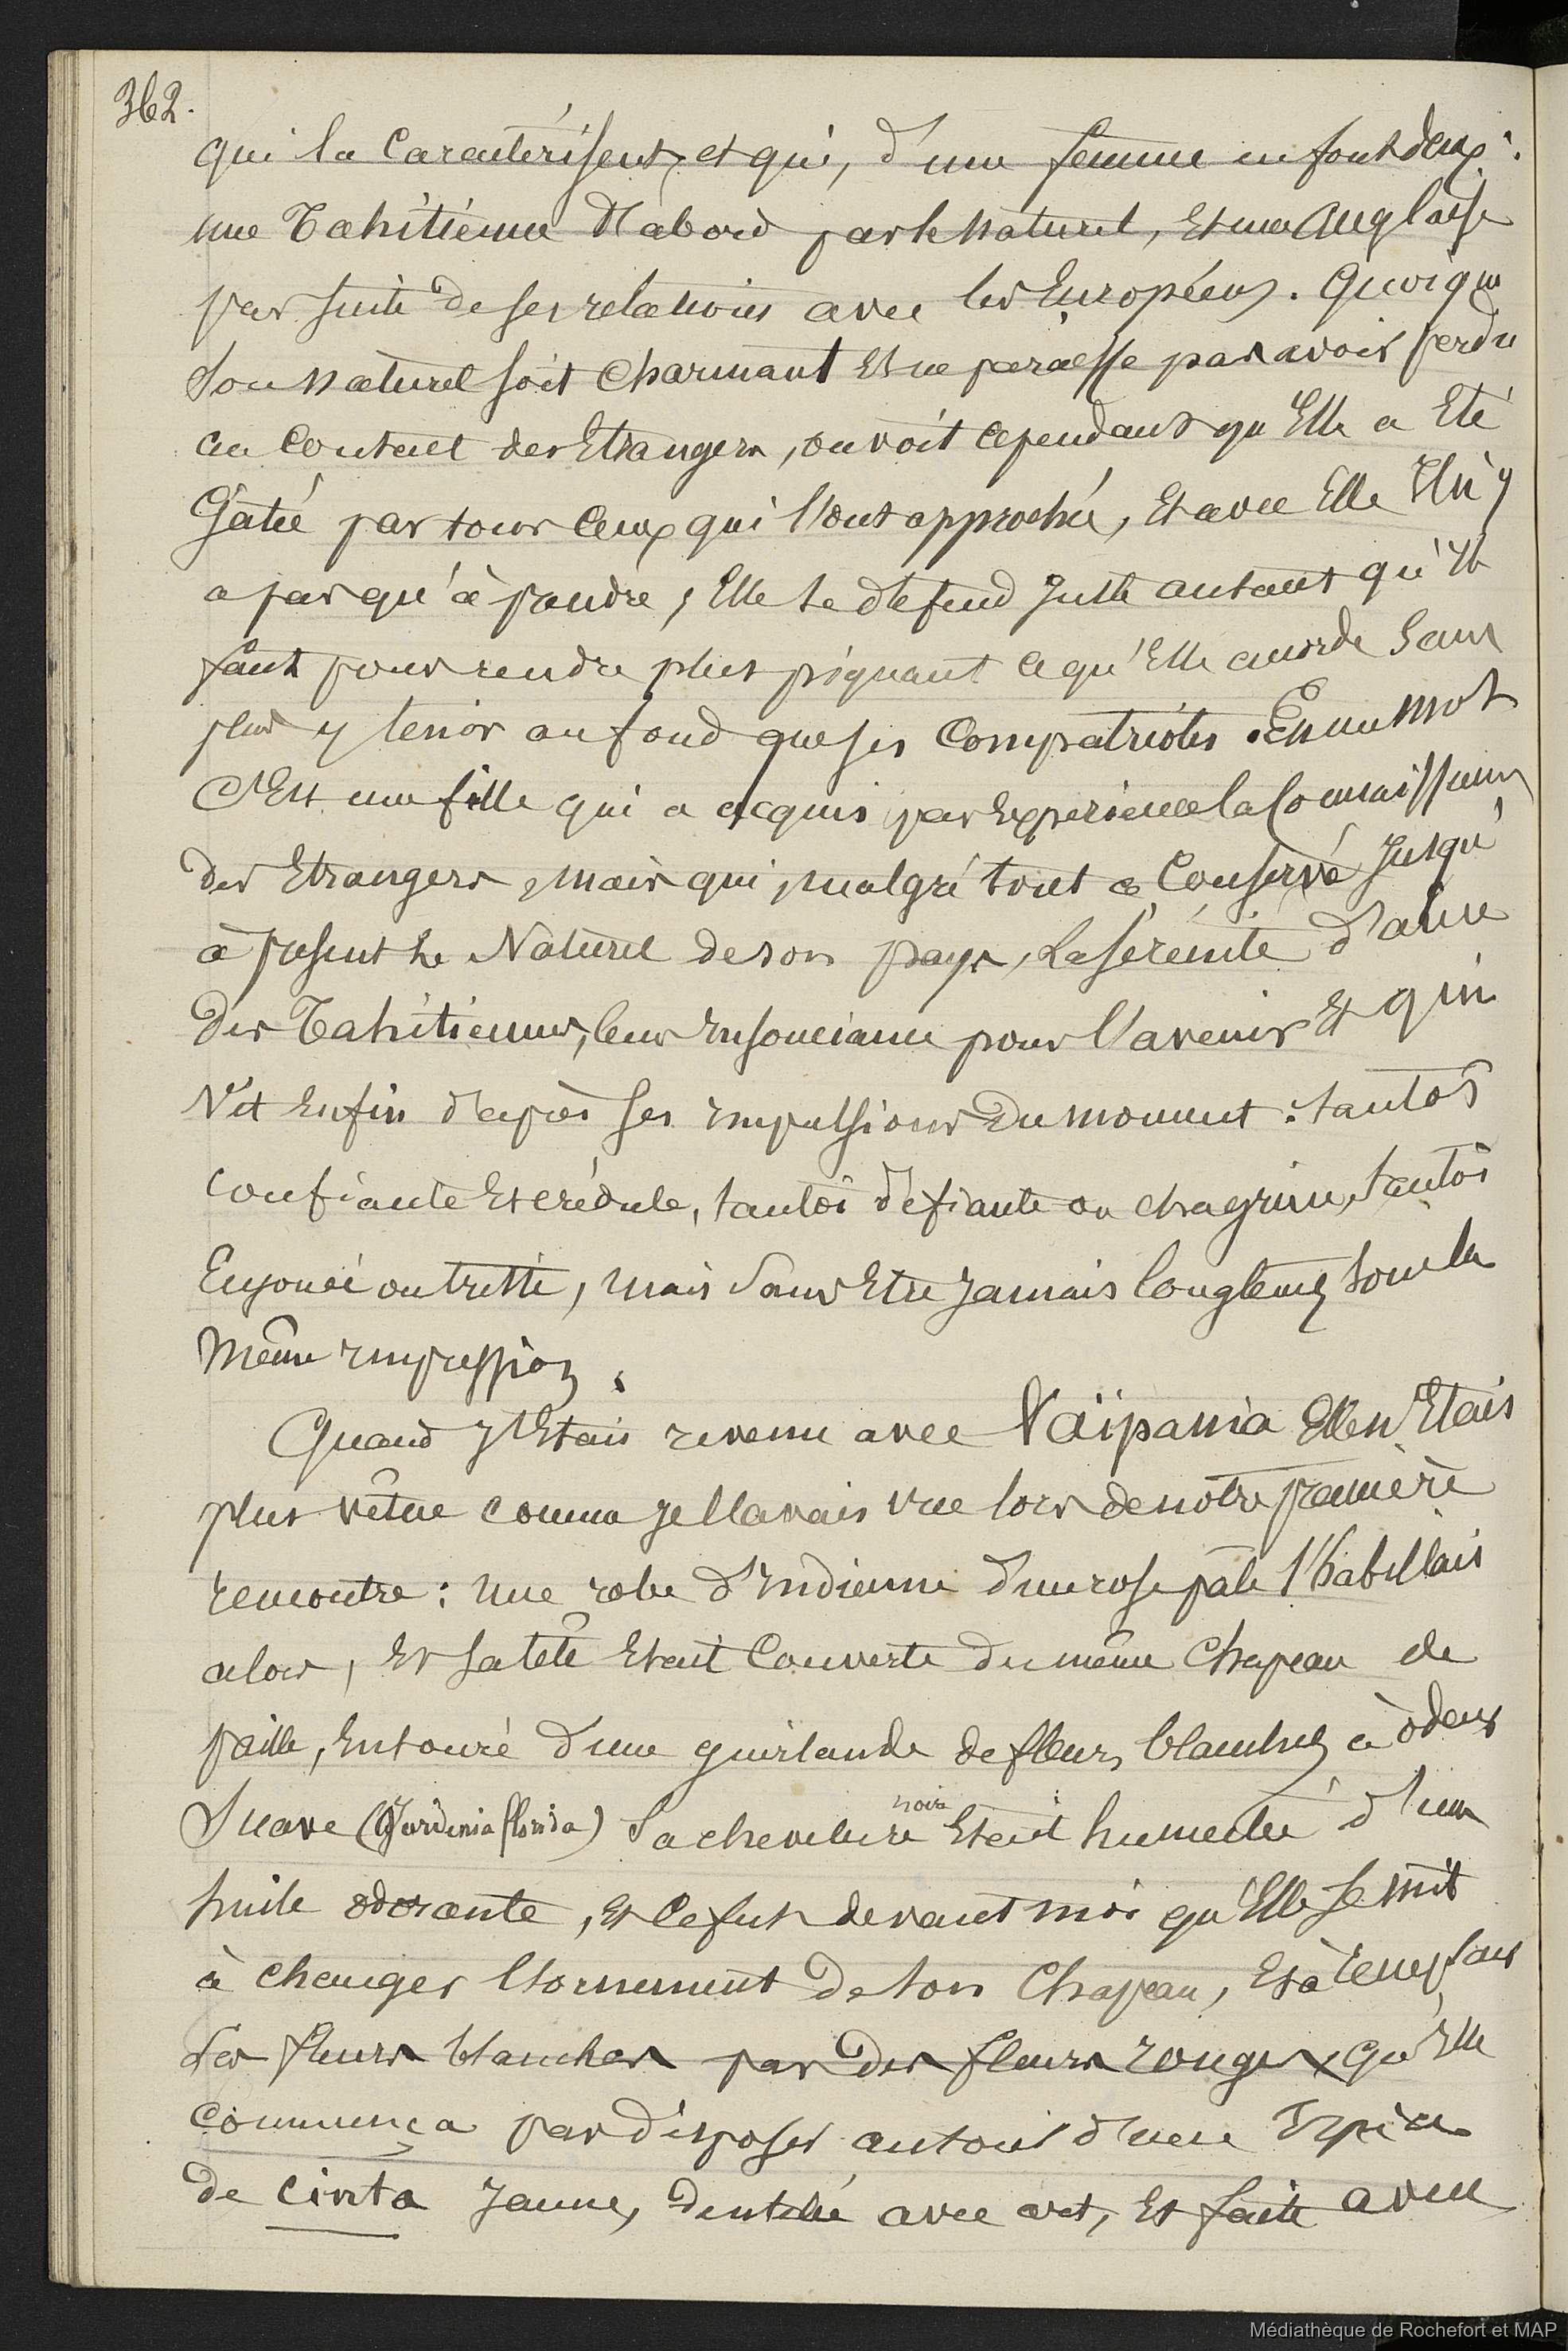 362.
qui la caractérisent, et qui, d'une femme en font deux :
une Tahitienne d'abord par le naturel, Et une Anglaise
par suite de ses relations avec les Européens. Quoique
Son naturel soit charmant Et ne paraisse pas avoir perdu
au Contact des Etrangers, on voit cependant qu'Elle a Eté
Gâtée par tous Ceux qui l'ont approchée, Et avec Elle Il n'y
a pas qu'à prendre ; Elle se défend Juste autant qu'Il
faut pour rendre plus piquant ce qu'Elle accorde Sans
plus y tenir au fond que ses Compatriotes. En un mot
C'Est une fille qui a acquis par Expérience la Connaissance
des Etrangers, mais qui, malgré tout a Conservé Jusqu'
à présent le Naturel de son pays, La sérénité d'âme
des Tahitiennes, leur Insouciance pour l'avenir Et qui
Vit Enfin d'après ses Impulsions du moment : tantôt
confiante Et crédule, tantôt défiante ou chagrine, tantôt
Enjouée ou triste, mais Sans Etre Jamais longtemps sous la
Même Impression.
Quand J'Etais revenu avec Vaïpania Elle n'Etais
plus vêtue comme Je l'avais vue lors de nôtre première
rencontre : Une robe d'Indienne d'un rose pâle l'habillais
alors, Et sa tête Etait Couverte du même Chapeau de
paille, Entouré d'une guirlande de fleurs blanches à odeur
Suave (Gardenia florida) Sa chevelure noire Etait humectée d'une
huile odorante, Et Ce fut devant moi qu'Elle se mit
à changer l'ornement de son Chapeau, Et à remplacer
Les fleurs blanches par des fleurs rouges, qu'Elle
commença par disposer autour d'une Espèce
de cinta Jaune, dentelée avec art, Et faite avec
Médiathèque de Rochefort et MAP